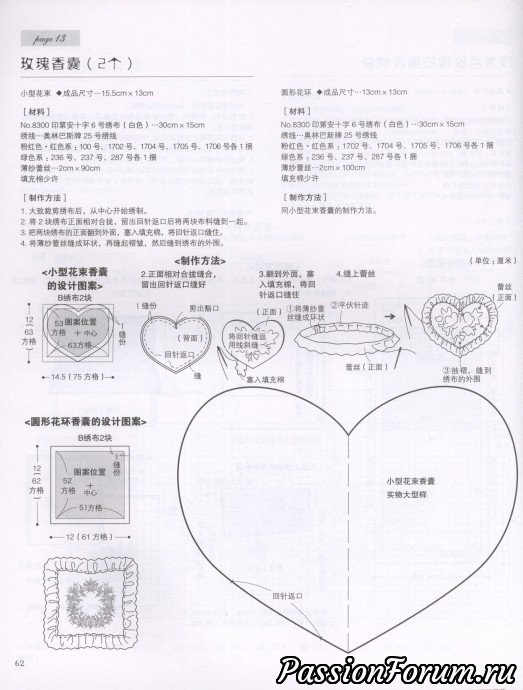 page 13
玫瑰香囊（2个）
小型花束 ◆成品尺寸…15.5cm×13cm
[ 材料 ]
No.8300 印第安十字 6 号绣布（白色）…30cm×15cm
绣线…奥林巴斯牌 25 号绣线
粉红色·红色系；100 号、1702 号、1704 号、1705 号、1706 号各 1 捆
绿色系；236 号、237 号、287 号各 1 捆
薄纱蕾丝…2cm×90cm
填充棉少许
[ 制作方法 ]
1. 大致裁剪绣布后，从中心开始绣制。
2. 将 2 块绣布正面相对合拢，留出回针返口后将两块布料缝到一起。
3. 把两块绣布的正面翻到外面，塞入填充棉，将回针返口缝住。
4. 将薄纱蕾丝缝成环状，再缝起褶皱，然后缝到绣布的外围。
圆形花环 ◆成品尺寸…13cm×13cm
[ 材料 ]
No.8300 印第安十字 6 号绣布（白色）…30cm×15cm
绣线…奥林巴斯牌 25 号绣线
粉红色·红色系；100 号、1702 号、1704 号、1705 号、1706 号各 1 捆
绿色系；236 号、237 号、287 号各 1 捆
薄纱蕾丝…2cm×100cm
填充棉少许
[ 制作方法 ]
同小型花束香囊的制作方法。
<制作方法>
（单位；厘米）
<小型花束香囊
的设计图案>
B绣布2块
12
(63
方格)
53
方格
图案位置
+ 中心
63方格
1
缝份
14.5（75 方格）
2.正面相对合拢缝合，
留出回针返口缝好
1 缝份
剪出豁口
（背面）
回针返口
缝
3.翻到外面，塞
入填充棉，将回
针返口缝住
（正面）
将回针缝返
用线斜缝
塞入填充棉
4.缝上蕾丝
①将薄纱蕾
丝缝成环状
②平伏针迹
蕾丝（正面）
蕾丝
（正面）
③抽褶，缝到
绣布的外围
<圆形花环香囊的设计图案>
B绣布2块
12
(62
方格)
图案位置
52
方格
+
中心
51方格
1
缝份
12（61 方格）
小型花束香囊
实物大型样
回针返口
62
PassionForum.ru